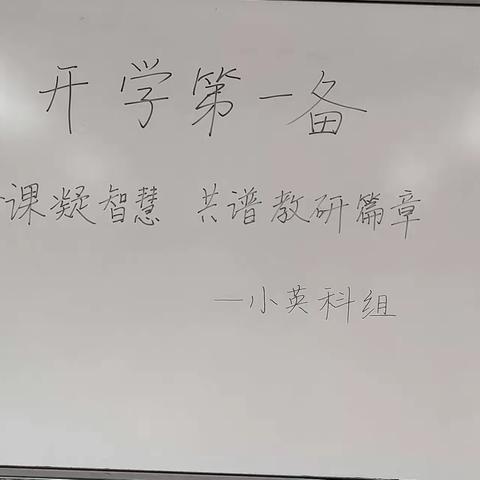 开学第一备
课凝智慧 共谱教研篇章
—小英科组